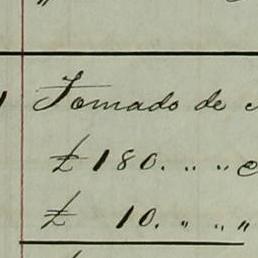 Tomado de
£ 180. " "
£ 10. " " "